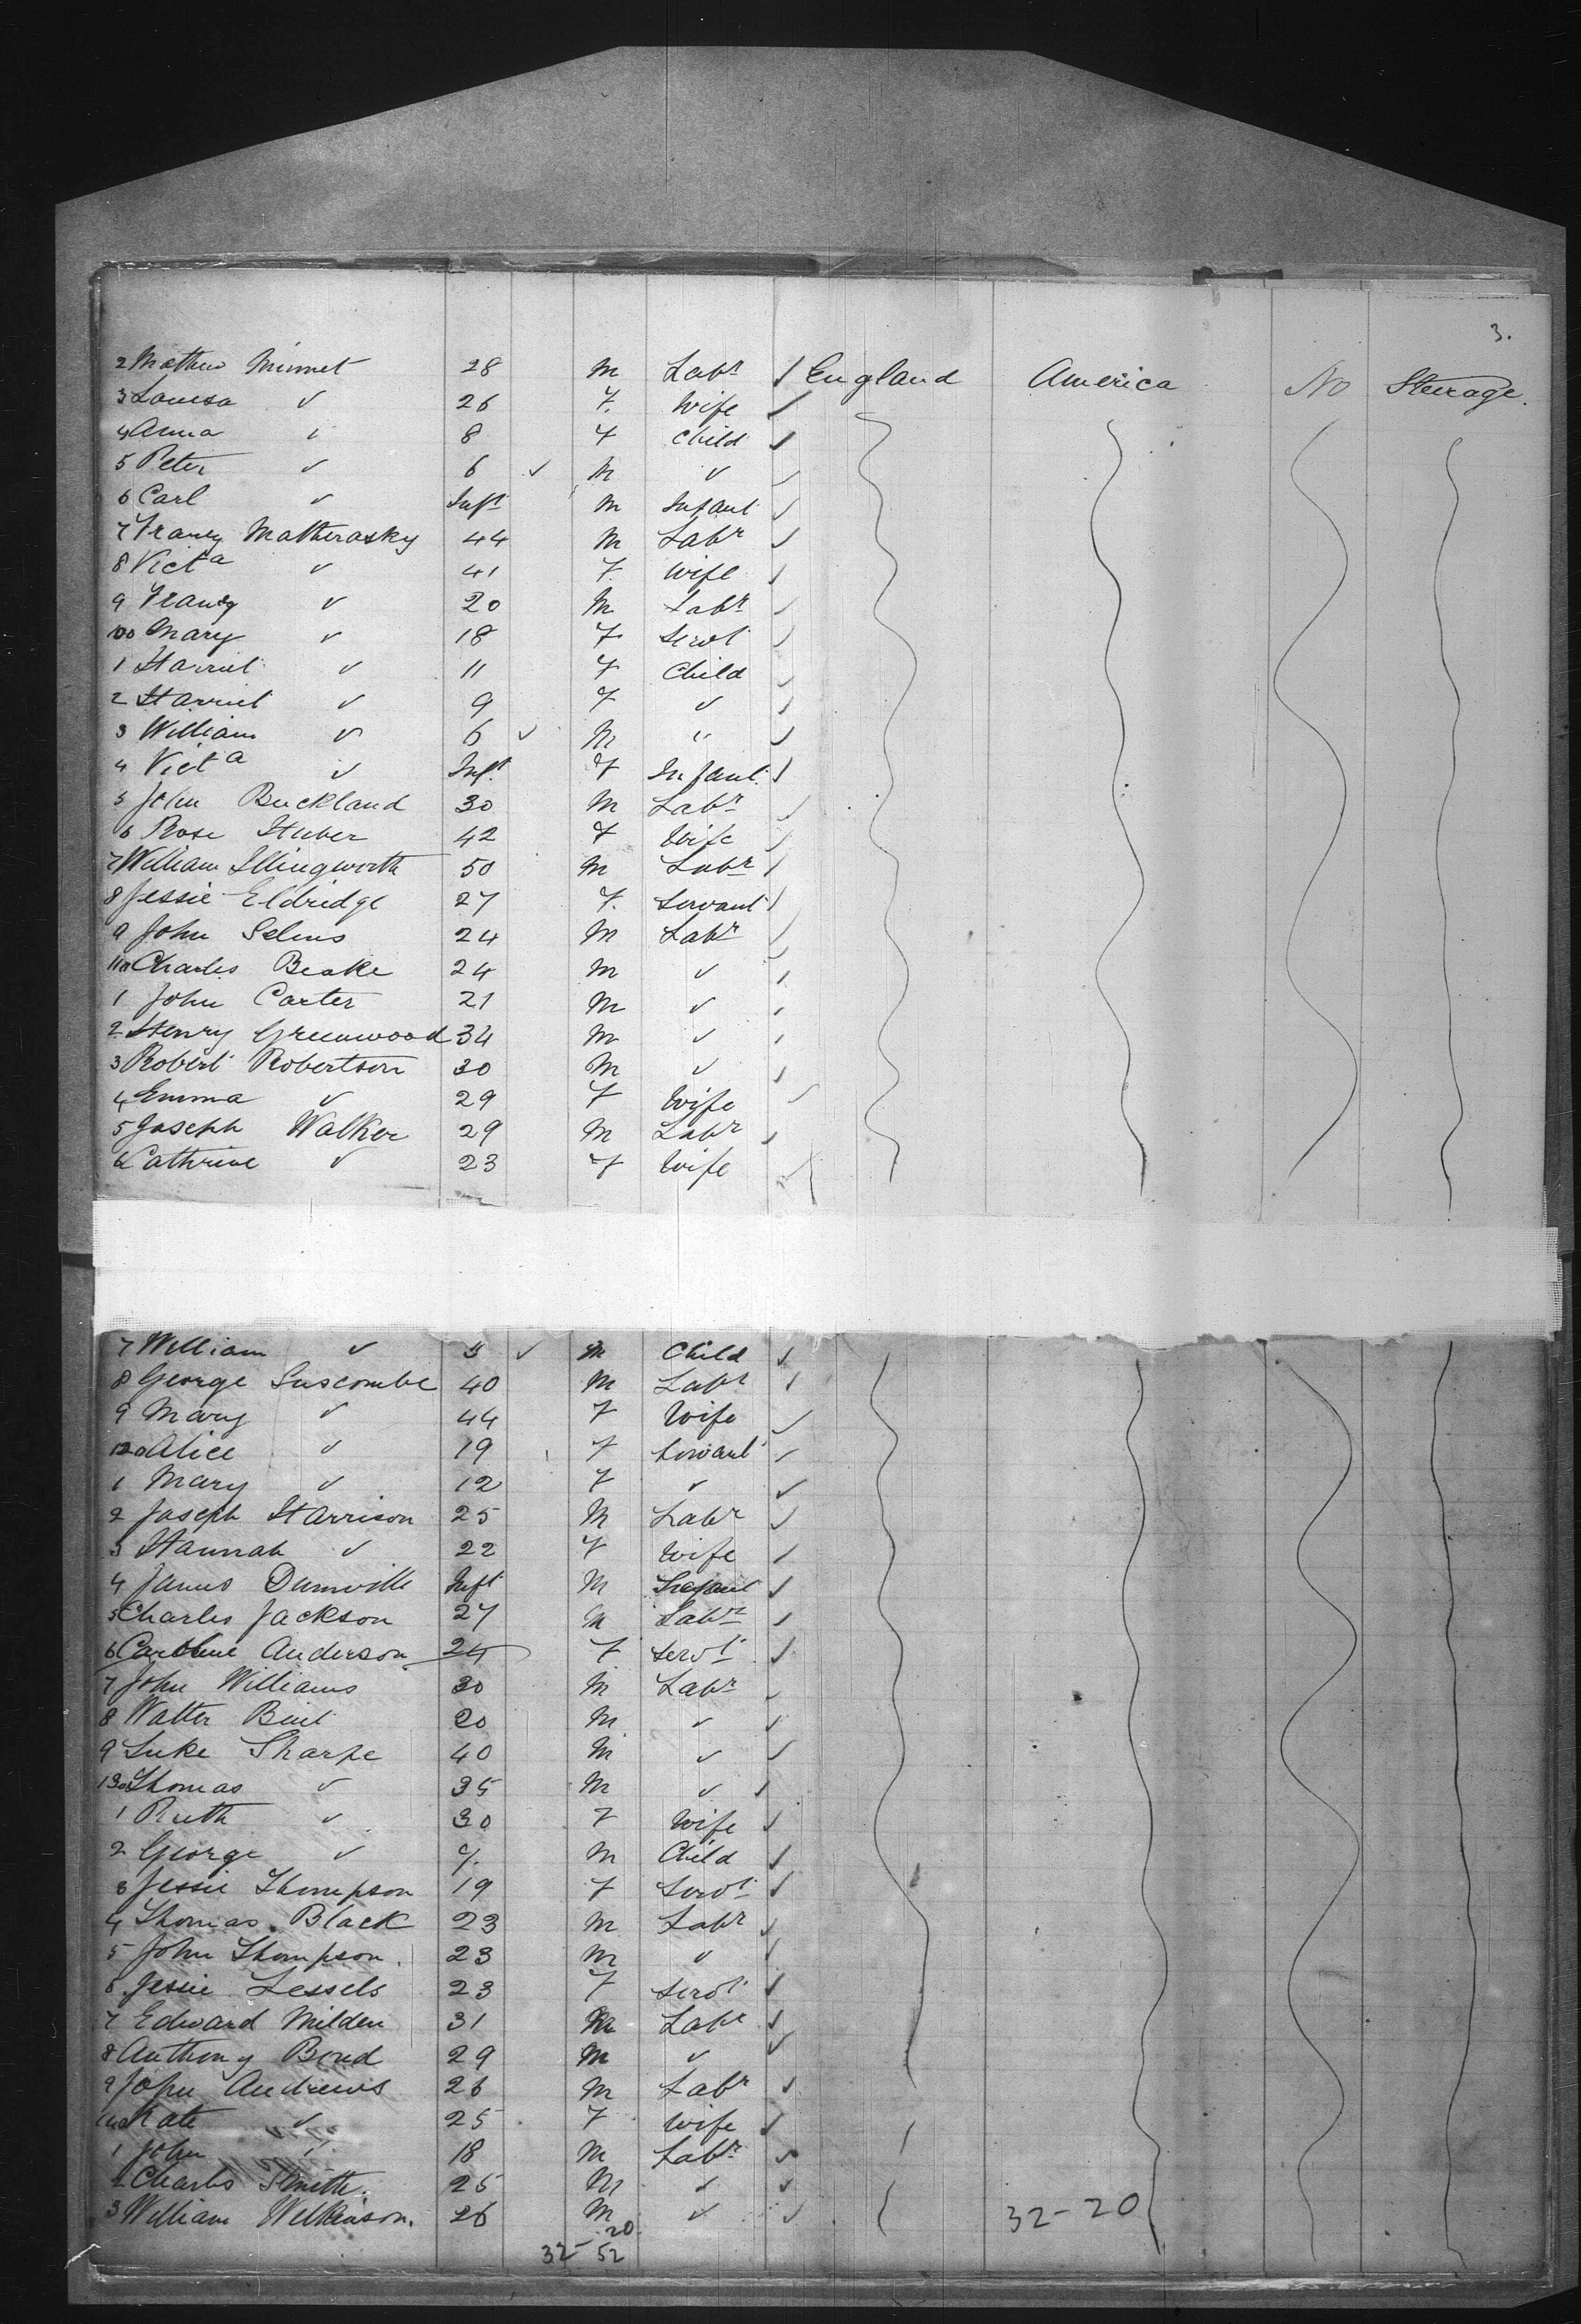 3.
2 Mathew Mimet 28 M Labr ✓ England America No Steerage.
3 Louisa ✓ 26 F. Wife ✓
4 Anna ✓ 8 F Child ✓
5 Peter ✓ 6 ✓ M ✓ ✓
6 Carl ✓ Inft M Infant ✓
7 Matherasky 44 M Labr ✓
8 Victa ✓ 41 F. Wife ✓
9 ✓ 20 M Labr ✓
100 Mary ✓ 18 F Servt ✓
1 Harriet ✓ 11 F Child ✓
2 Harriet ✓ 9 F ✓ ✓
3 William ✓ 6 ✓ M " ✓
4 Victa ✓ Inft F Infant ✓
5 John Buckland 30 M Labr ✓
6 Rose Huber 42 F Wife ✓
7 William Illingworth 50 M Labr ✓
8 Jessie Eldridge 27 F. Servant ✓
9 John Selms 24 M Labr ✓
110 Charles Beake 24 M ✓ ✓
1 John Carter 21 M ✓ ✓
2 Henry Greenwood 34 M ✓ ✓
3 Robert Robertson 30 M ✓ ✓
4 Emma ✓ 29 F Wife ✓
5 Joseph Walker 29 M Labr ✓
6 Cathrine ✓ 23 F Wife ✓
7 William ✓ ✓ M Child ✓
8 George Luscombe 40 M Labr ✓
9 Mary ✓ 44 F Wife ✓
120 Alice ✓ 19 F Servant ✓
1 Mary ✓ 12 F ✓ ✓
2 Joseph Harrison 25 M Labr ✓
3 Hannah ✓ 22 F Wife ✓
4 James Dumville Inft M Infant ✓
5 Charles Jackson 27 M Labr ✓
6 Caroline Anderson 24 F Servt ✓
7 John Williams 30 M Labr ✓
8 Walter 20 M ✓ ✓
9 Luke Sharpe 40 M ✓ ✓
130 Thomas ✓ 35 M ✓ ✓
1 Ruth ✓ 30 F Wife ✓
2 George ✓ 9. M Child ✓
3 Jessie Thompson 19 F Servt ✓
4 Thomas Black 23 M Labr ✓
5 John Thompson. 23 M ✓ ✓
6 Jessie Lessels 23 F Servt ✓
7 Edward Milden 31 M Labr ✓
8 Anthony Bond 29 M ✓ ✓
9 John Andrews 26 M Labr ✓
140 Kate ✓ 25 F Wife ✓
1 John " 18 M Labr ✓
2 Charles Smith. 25 M ✓ ✓
3 William Wilkinson. 26 M ✓ ✓ 32-20
20
32- 52